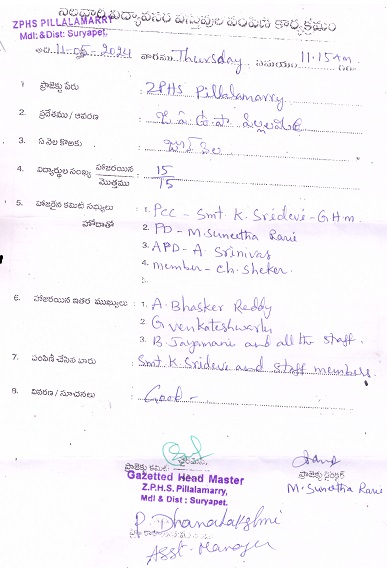 నిలబ్దార్థి విద్యావసర వస్తువుల పంపిణి కార్యక్రమం
ZPHS PILLALAMARRY
Mdl: & Dist: Suryapet.
తేది 11-05-2024 వారము Thursday సమయం 11.15 Am
1 ప్రాజెక్టు పేరు : ZPHS Pillalamarry
2. ప్రదేశము / ఆవరణ : జి.ప.ఉ.పా పిల్లలమర్రి
3. ఏ నెల కొరకు : జూన్ నెల
4. విద్యార్థుల సంఖ్య హాజరయిన / మొత్తము : 15/15
5. హాజరైన కమిటి సభ్యులు : 1. PCC - Smt. K. Sridevi - GHM
హోదాతో 2. PD - M. Suneetha Rani
3. APD - A. Srinivas
4. member - ch. sheker.
5.
6. హాజరయిన ఇతర ముఖ్యులు : 1. A. Bhasker Reddy
2 G venkateshwarlu
3. B. Jayamani and all the staff.
7. పంపిణి చేసిన వారు : Smt. K. Sridevi and staff members.
8. వివరణ / సూచనలు : Good -
ప్రాజెక్టు కమిటి చైర్మన్
ప్రాజెక్టు డైరెక్టర్
Gazetted Head Master
Z.P.H.S. Pillalamarry,
Mdl & Dist : Suryapet.
M. Suneetha Rani
P. Dhanalakshmi
Asst. Manager